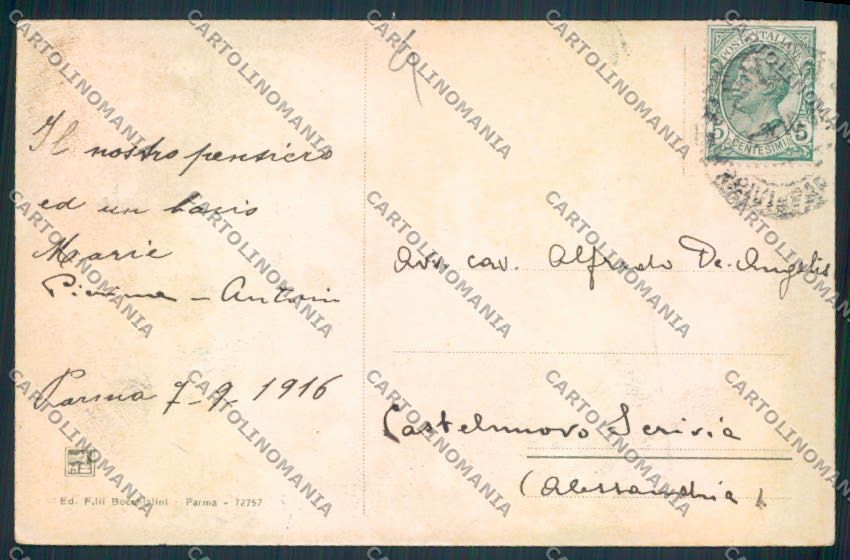 Il nostro pensiero
ed un bacio
Marie
Pierina - Antonio
Parma 7-9 1916
Ed. F.lli Bocchialini - Parma - 72757
POSTE ITALIANE
5 CENTESIMI 5
Avv. cav. Alfredo De Angelis
Castelnuovo Scrivia
(Alessandria)
CARTOLINOMANIA